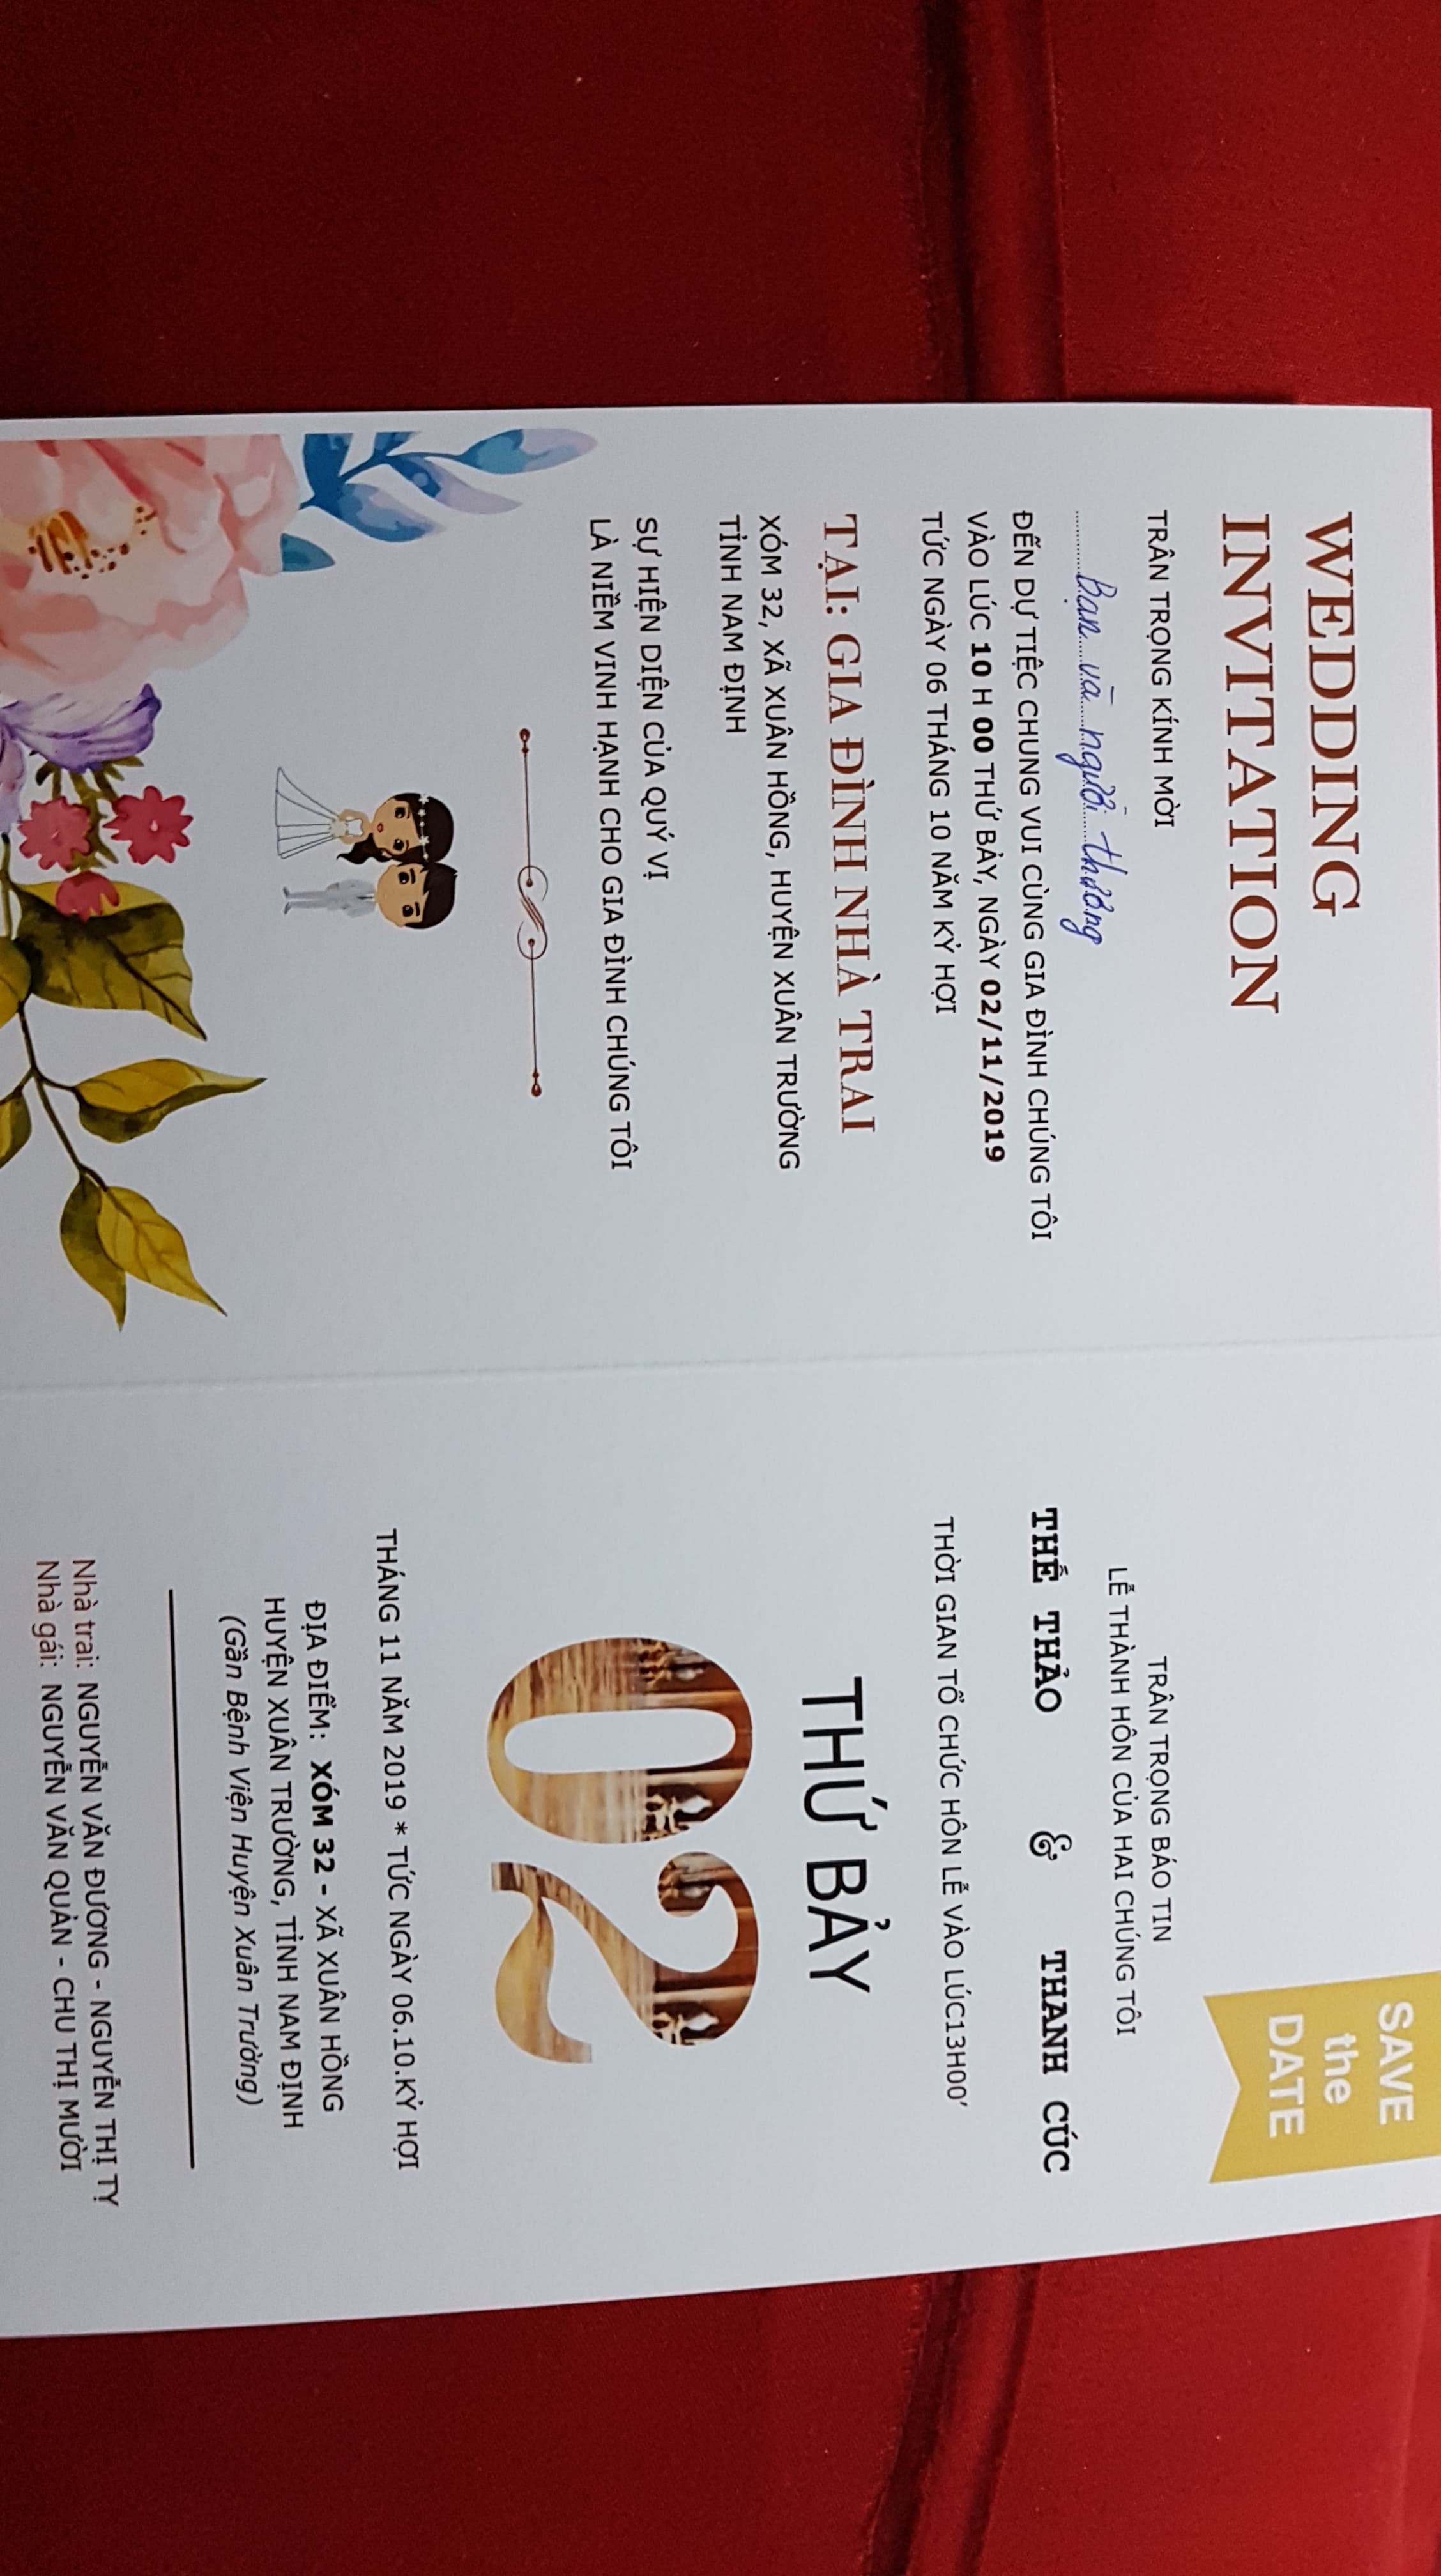 WEDDING
INVITATION
TRÂN TRỌNG KÍNH MỜI
Bạn và người thương
ĐẾN DỰ TIỆC CHUNG VUI CÙNG GIA ĐÌNH CHÚNG TÔI
VÀO LÚC 10 H 00 THỨ BẢY, NGÀY 02/11/2019
TỨC NGÀY 06 THÁNG 10 NĂM KỶ HỢI
TẠI: GIA ĐÌNH NHÀ TRAI
XÓM 32, XÃ XUÂN HỒNG, HUYỆN XUÂN TRƯỜNG
TỈNH NAM ĐỊNH
SỰ HIỆN DIỆN CỦA QUÝ VỊ
LÀ NIỀM VINH HẠNH CHO GIA ĐÌNH CHÚNG TÔI
SAVE
the
DATE
TRÂN TRỌNG BÁO TIN
LỄ THÀNH HÔN CỦA HAI CHÚNG TÔI
THẾ THẢO & THANH CÚC
THỜI GIAN TỔ CHỨC HÔN LỄ VÀO LÚC13H00’
THỨ BẢY
02
THÁNG 11 NĂM 2019 * TỨC NGÀY 06.10.KỶ HỢI
ĐỊA ĐIỂM: XÓM 32 - XÃ XUÂN HỒNG
HUYỆN XUÂN TRƯỜNG, TỈNH NAM ĐỊNH
(Gần Bệnh Viện Huyện Xuân Trường)
Nhà trai: NGUYỄN VĂN ĐƯƠNG - NGUYỄN THỊ TỴ
Nhà gái: NGUYỄN VĂN QUẢN - CHU THỊ MƯỜI